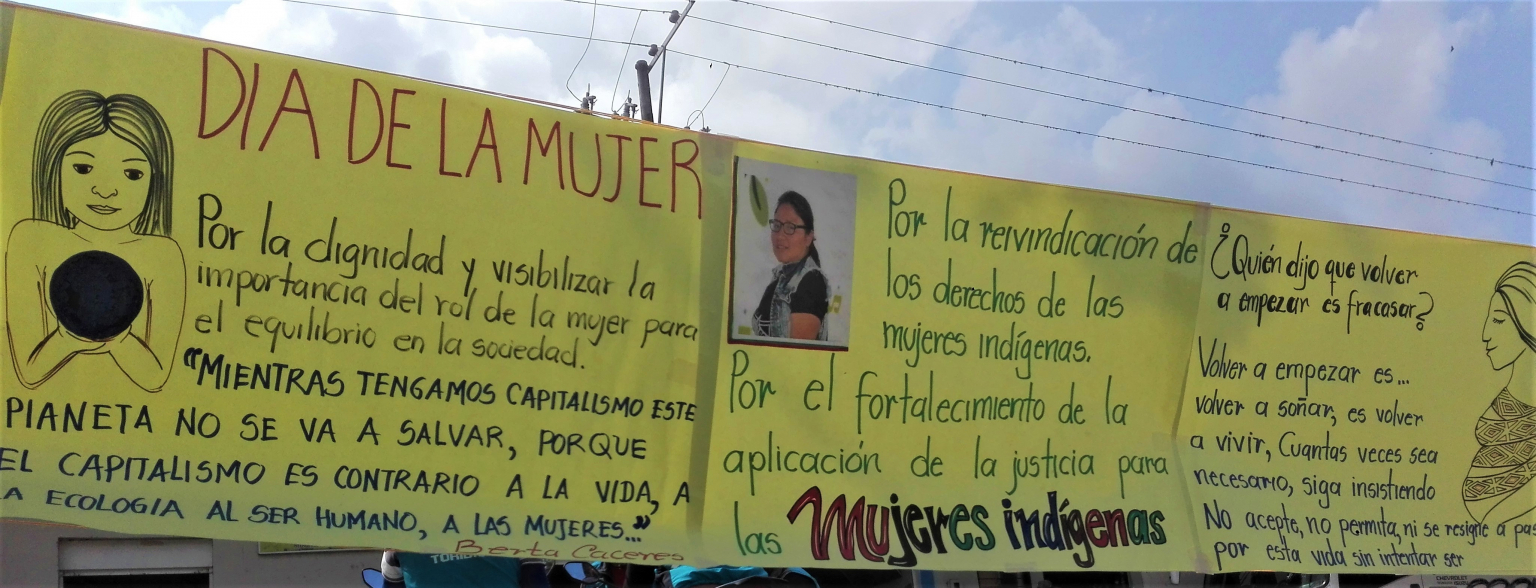 DIA DE LA MUJER
Por la dignidad y visibilizar la
importancia del rol de la mujer para
el equilibrio en la sociedad.
"MIENTRAS TENGAMOS CAPITALISMO ESTE
PLANETA NO SE VA A SALVAR, PORQUE
EL CAPITALISMO ES CONTRARIO A LA VIDA, A
LA ECOLOGIA AL SER HUMANO, A LAS MUJERES..."
Berta Caceres
Por la reivindicación de
los derechos de las
mujeres indígenas.
Por el fortalecimiento de la
aplicación de la justicia para
las Mujeres indígenas
¿Quién dijo que volver
a empezar es fracasar?
Volver a empezar es...
volver a soñar, es volver
a vivir, Cuantas veces sea
necesario, siga insistiendo
No acepte, no permita, ni se resigne a pas
por esta vida sin intentar ser
CHEVROLET